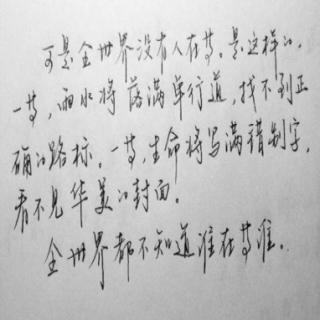 可是全世界没有人在等。是这样的，
一等，雨水将落满单行道，找不到正
确的路标。一等，生命将写满错别字，
看不见华美的封面。
全世界都不知道谁在等谁。